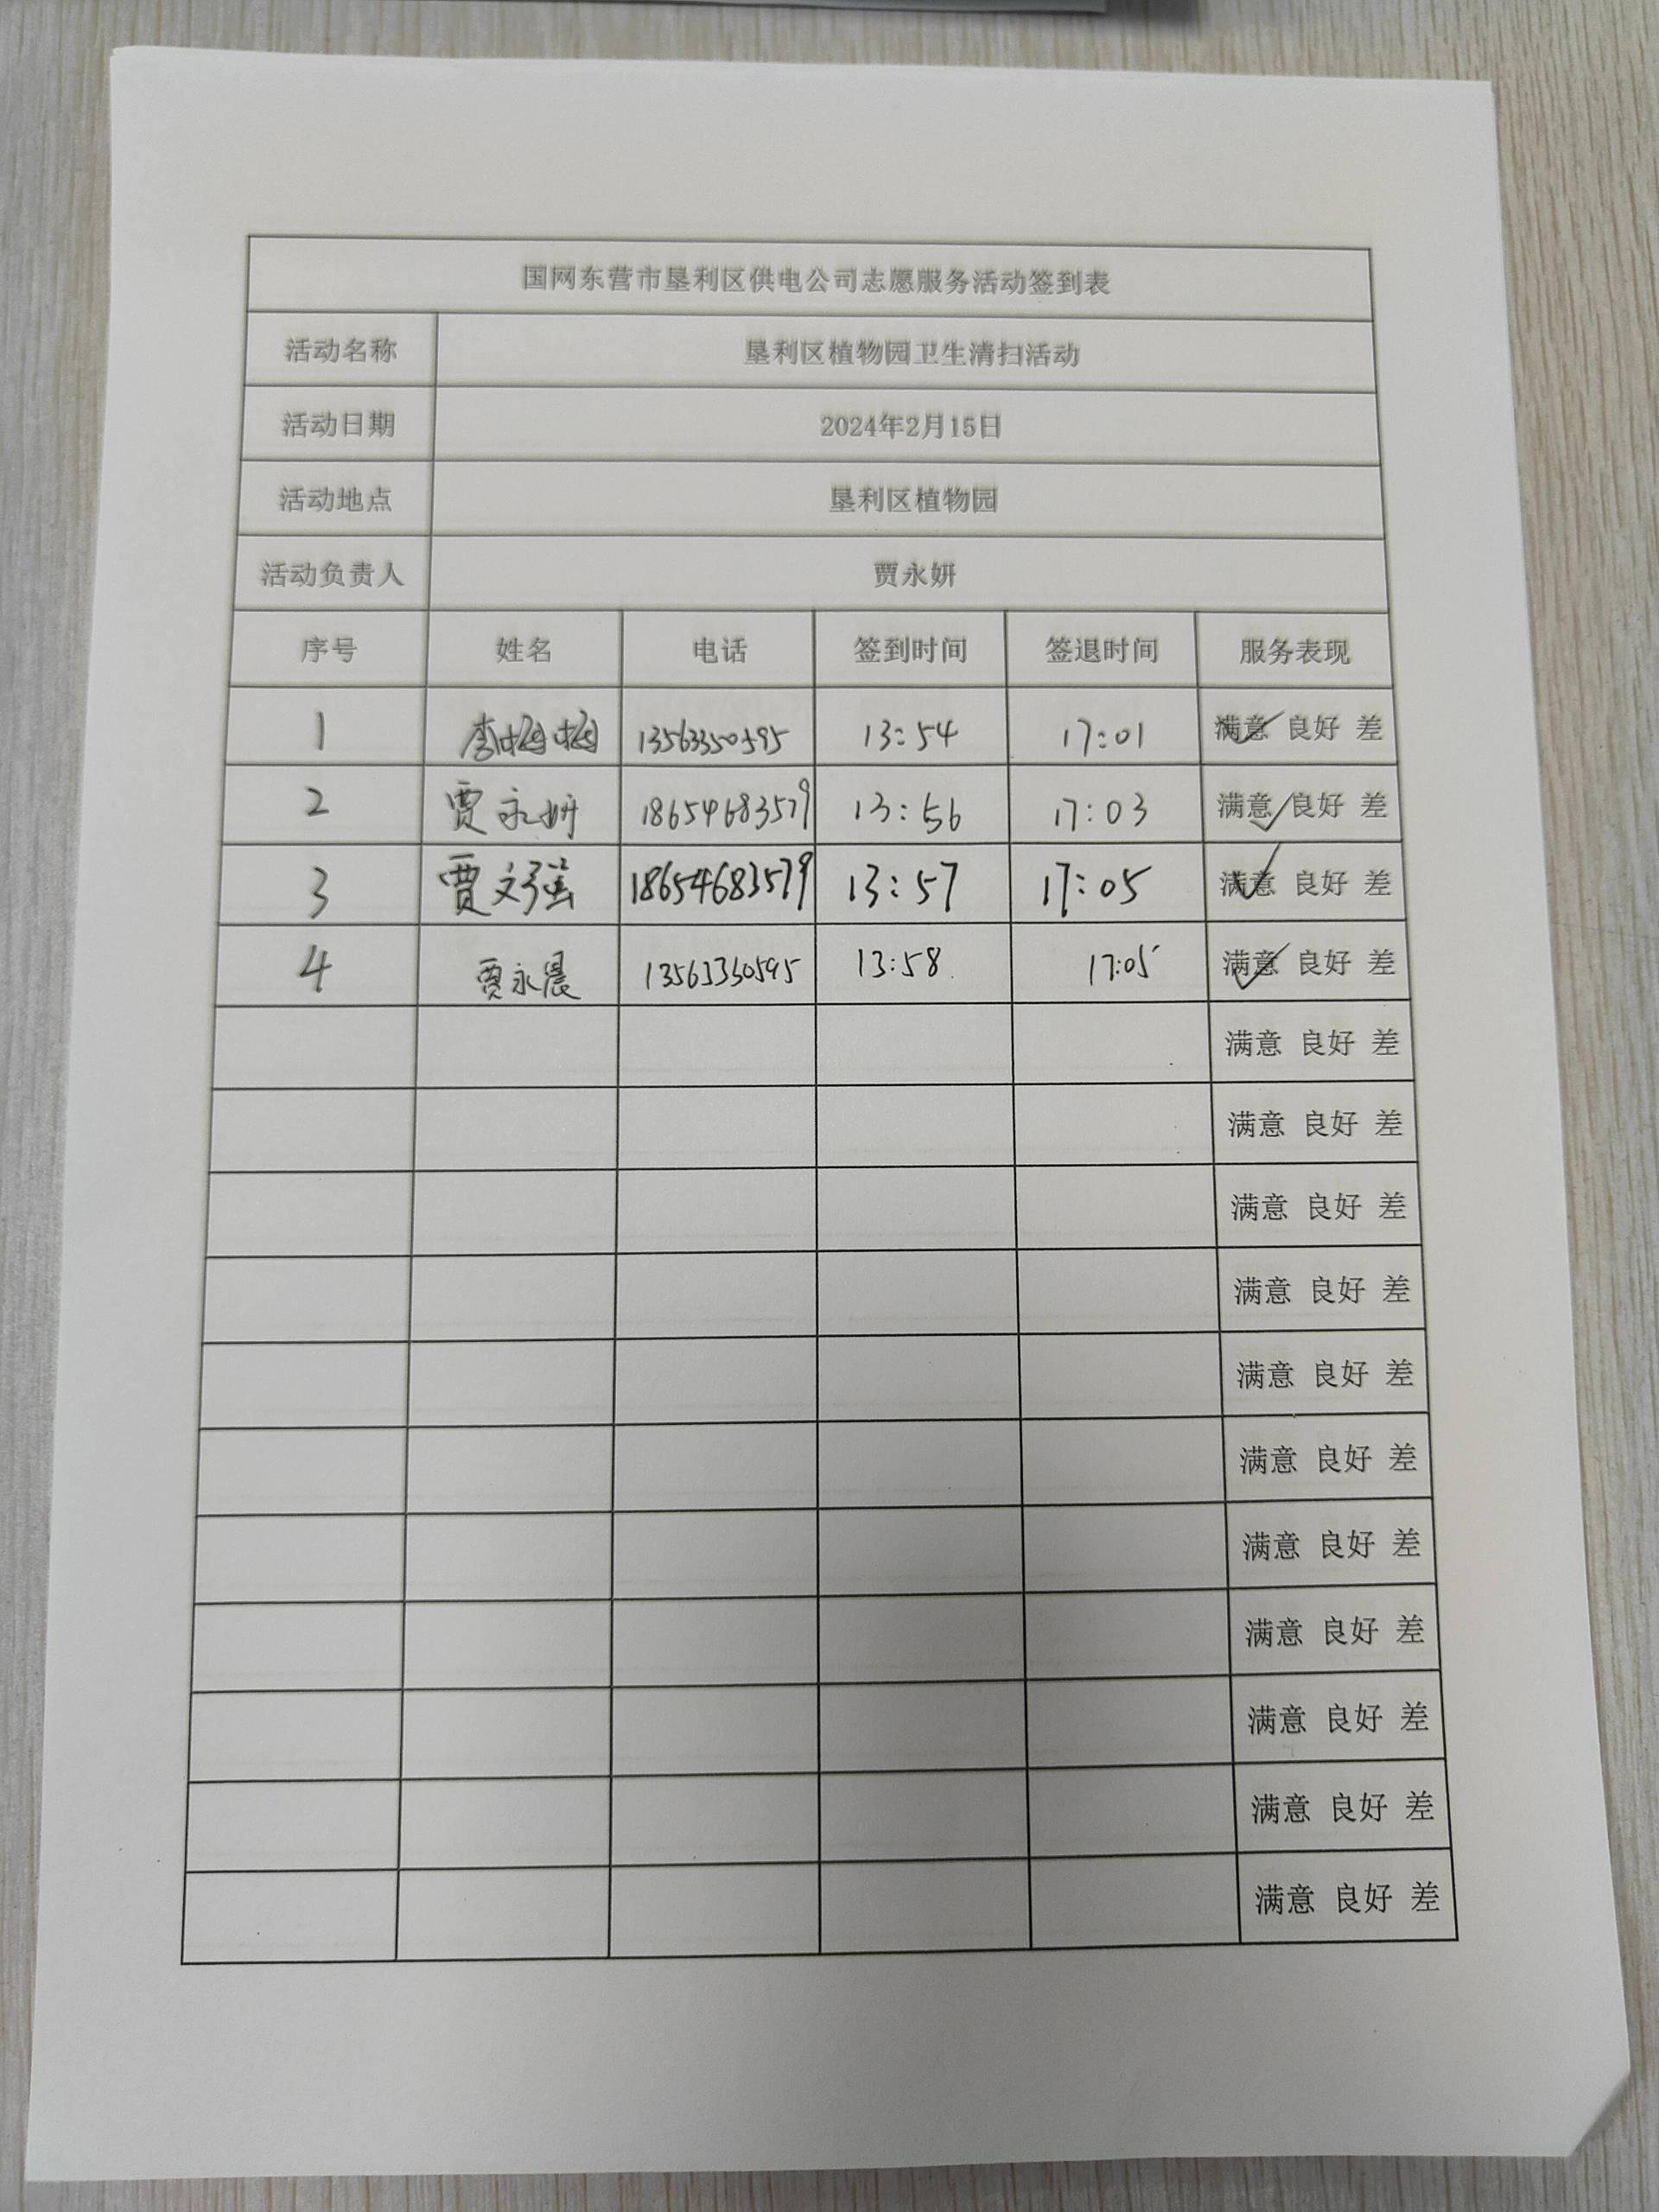 国网东营市垦利区供电公司志愿服务活动签到表
活动名称 垦利区植物园卫生清扫活动
活动日期 2024年2月15日
活动地点 垦利区植物园
活动负责人 贾永妍
序号 姓名 电话 签到时间 签退时间 服务表现
1 李梅梅 13563350595 13:54 17:01 满意 良好 差
2 贾永妍 18654683579 13:56 17:03 满意 良好 差
3 贾文强 18654683579 13:57 17:05 满意 良好 差
4 贾永晨 13563350595 13:58 17:05 满意 良好 差
满意 良好 差
满意 良好 差
满意 良好 差
满意 良好 差
满意 良好 差
满意 良好 差
满意 良好 差
满意 良好 差
满意 良好 差
满意 良好 差
满意 良好 差